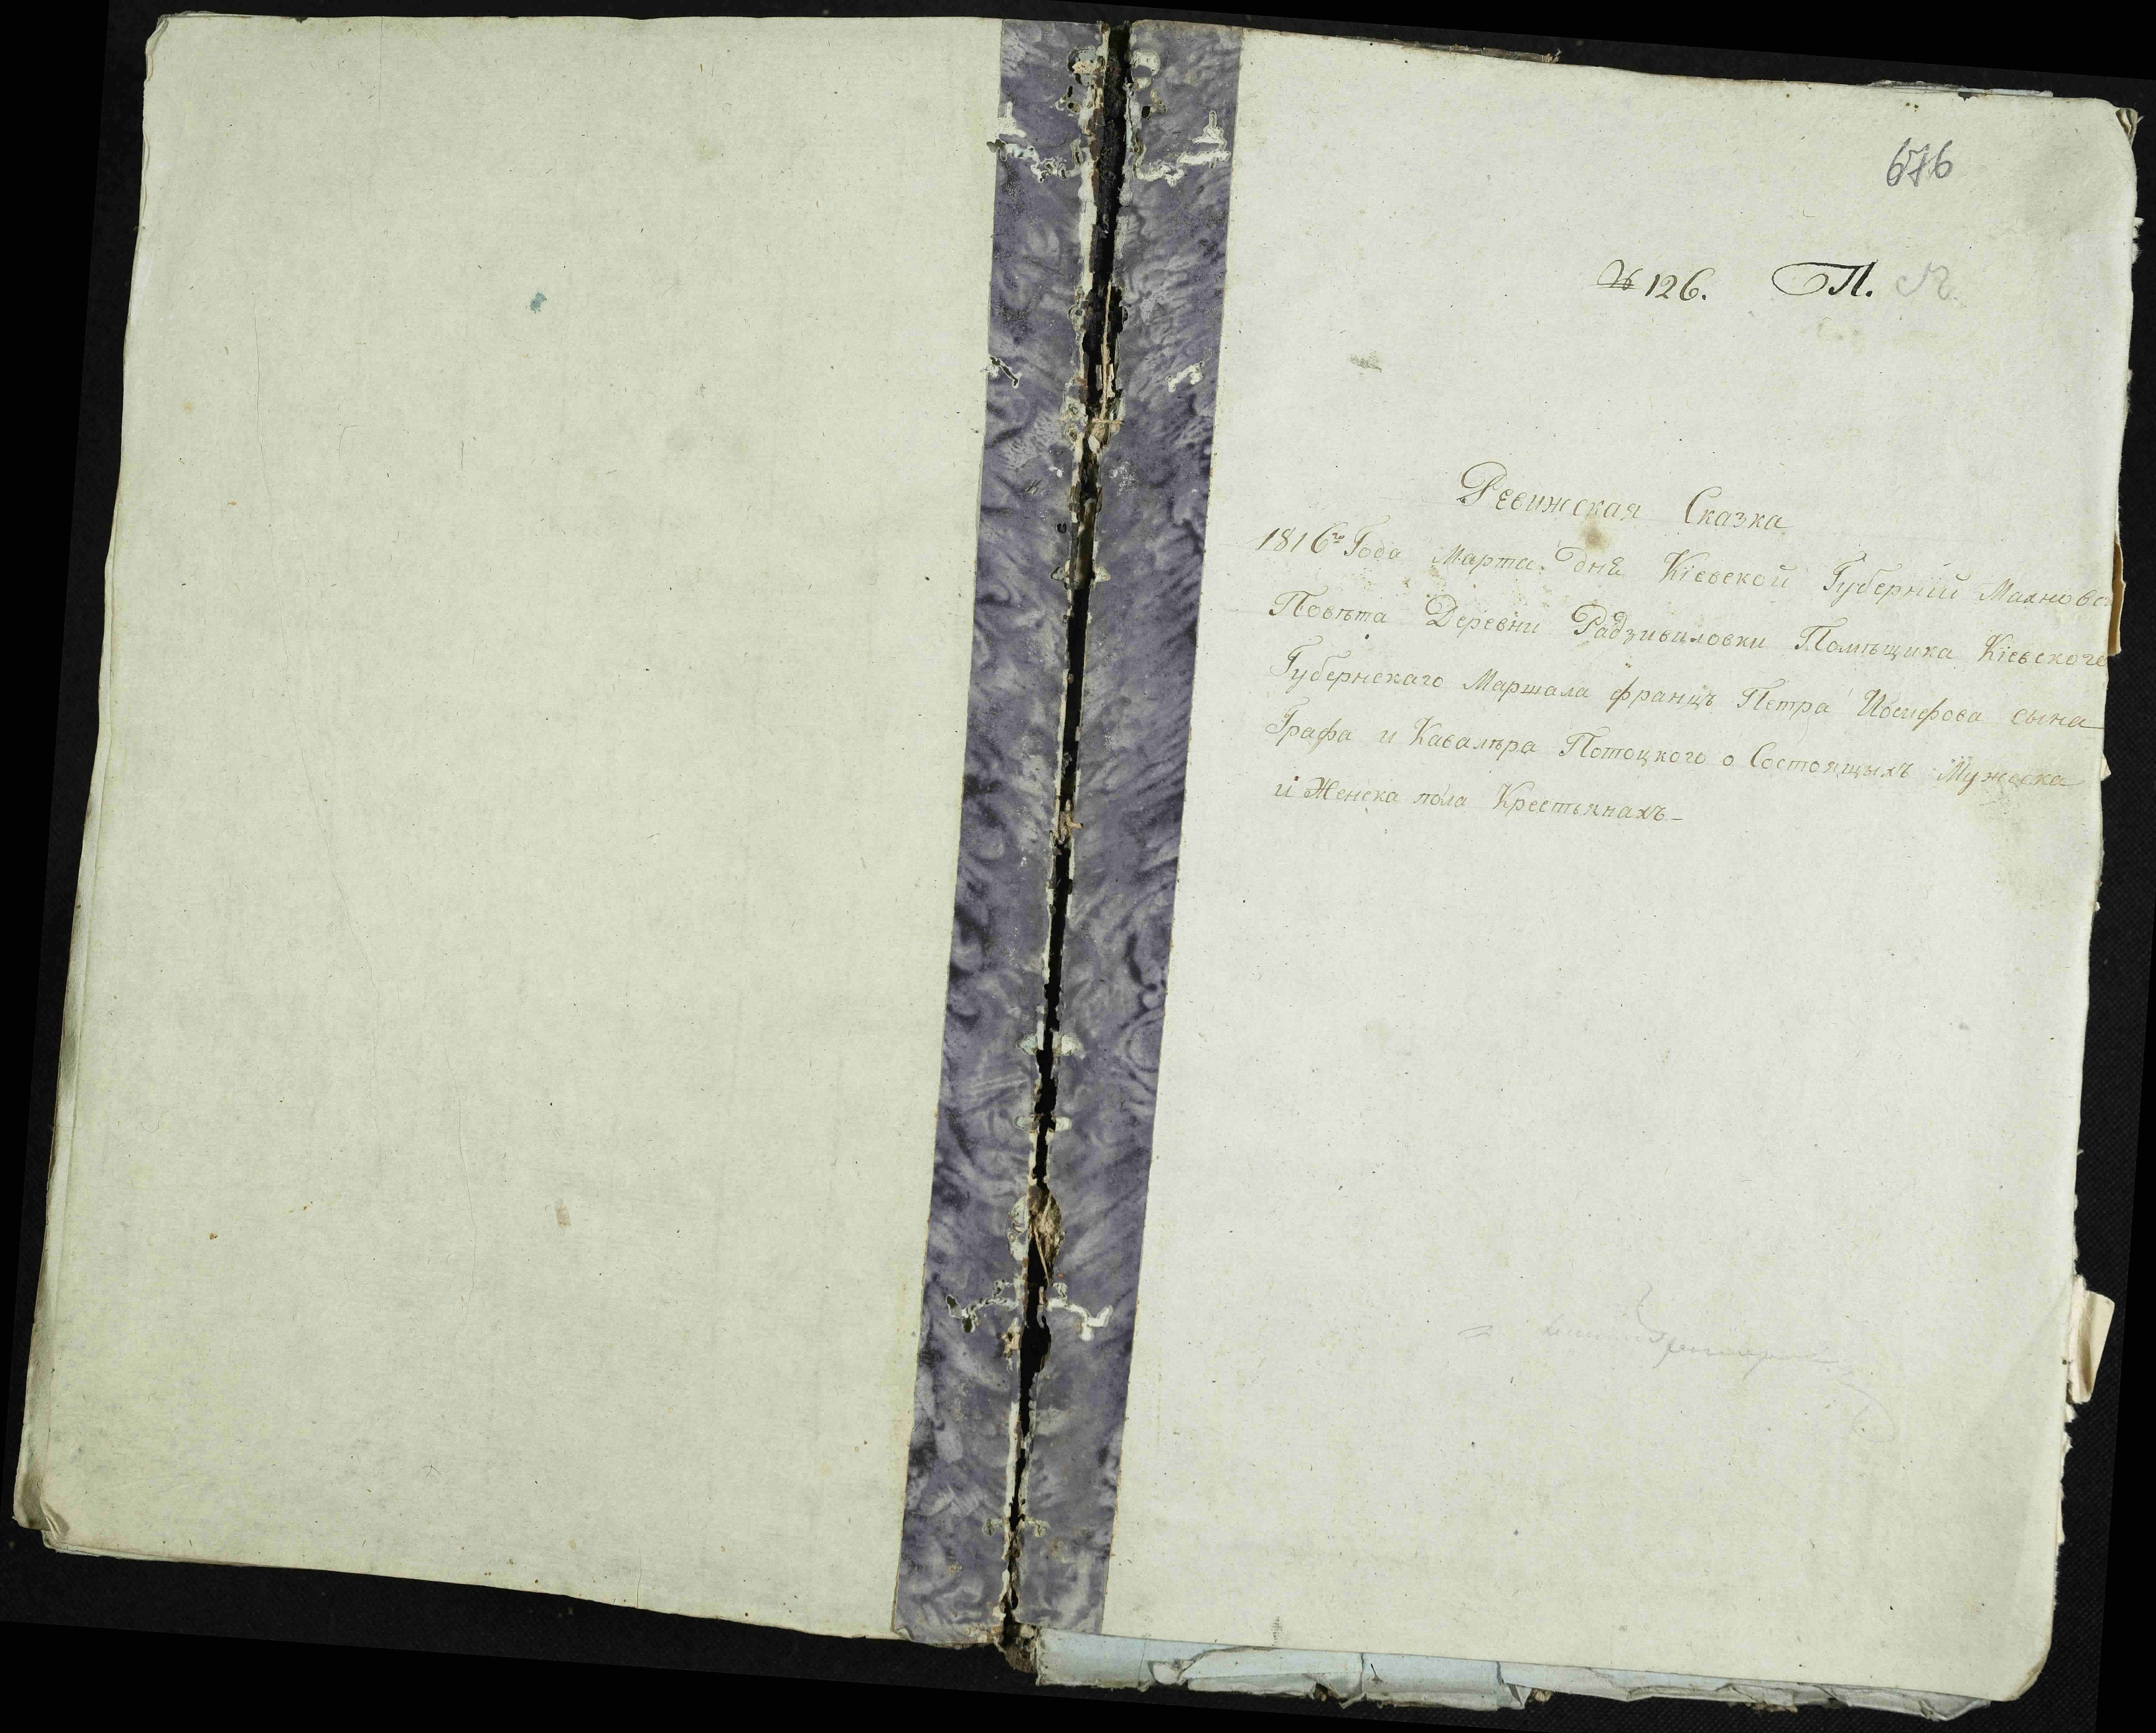 676
№ 126. П.
Ревижская Сказка
1816го Года Марта дня Кіевской Губерніи Махновс
Повѣта Деревни Радзивиловки Помѣщика Кіевского
Губернскаго Маршала франць Петра Иосифова сына
Графа и Кавалѣра Потоцкого о Состоящыхъ Мужеска
и Женска пола Крестьянахъ-